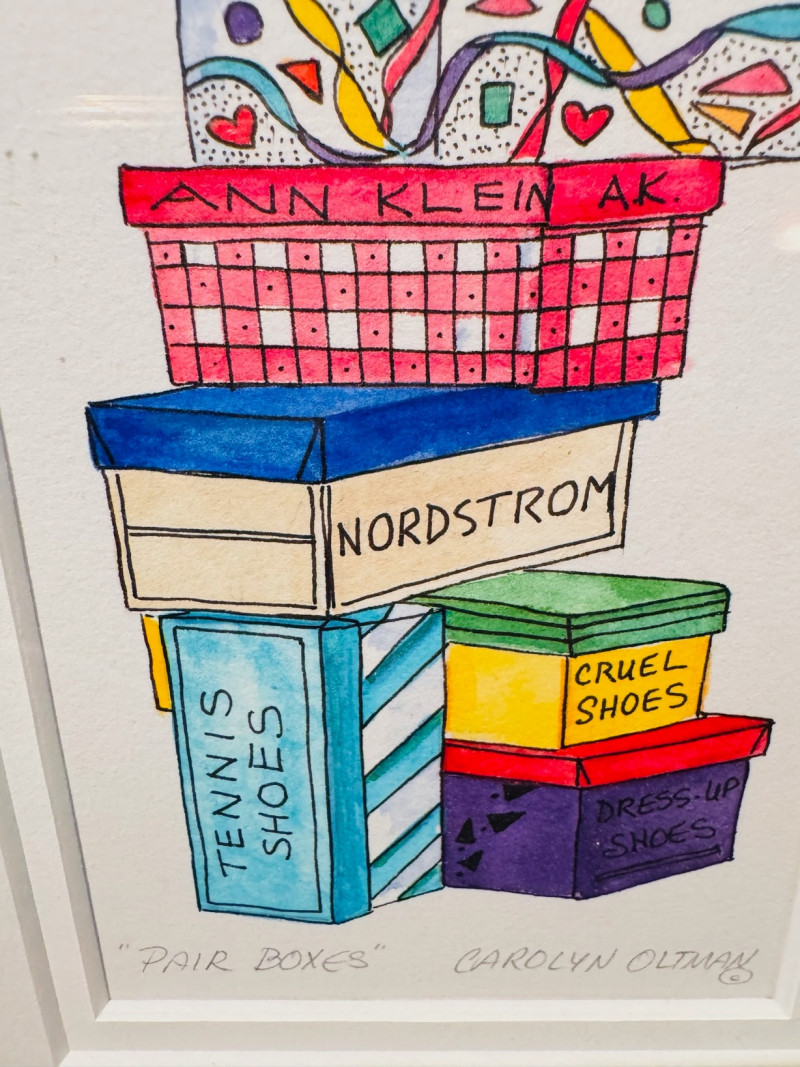 ANN KLEIN A.K.
NORDSTROM
TENNIS
SHOES
CRUEL
SHOES
DRESS-UP
SHOES
"PAIR BOXES" CAROLYN OLTMAN ©